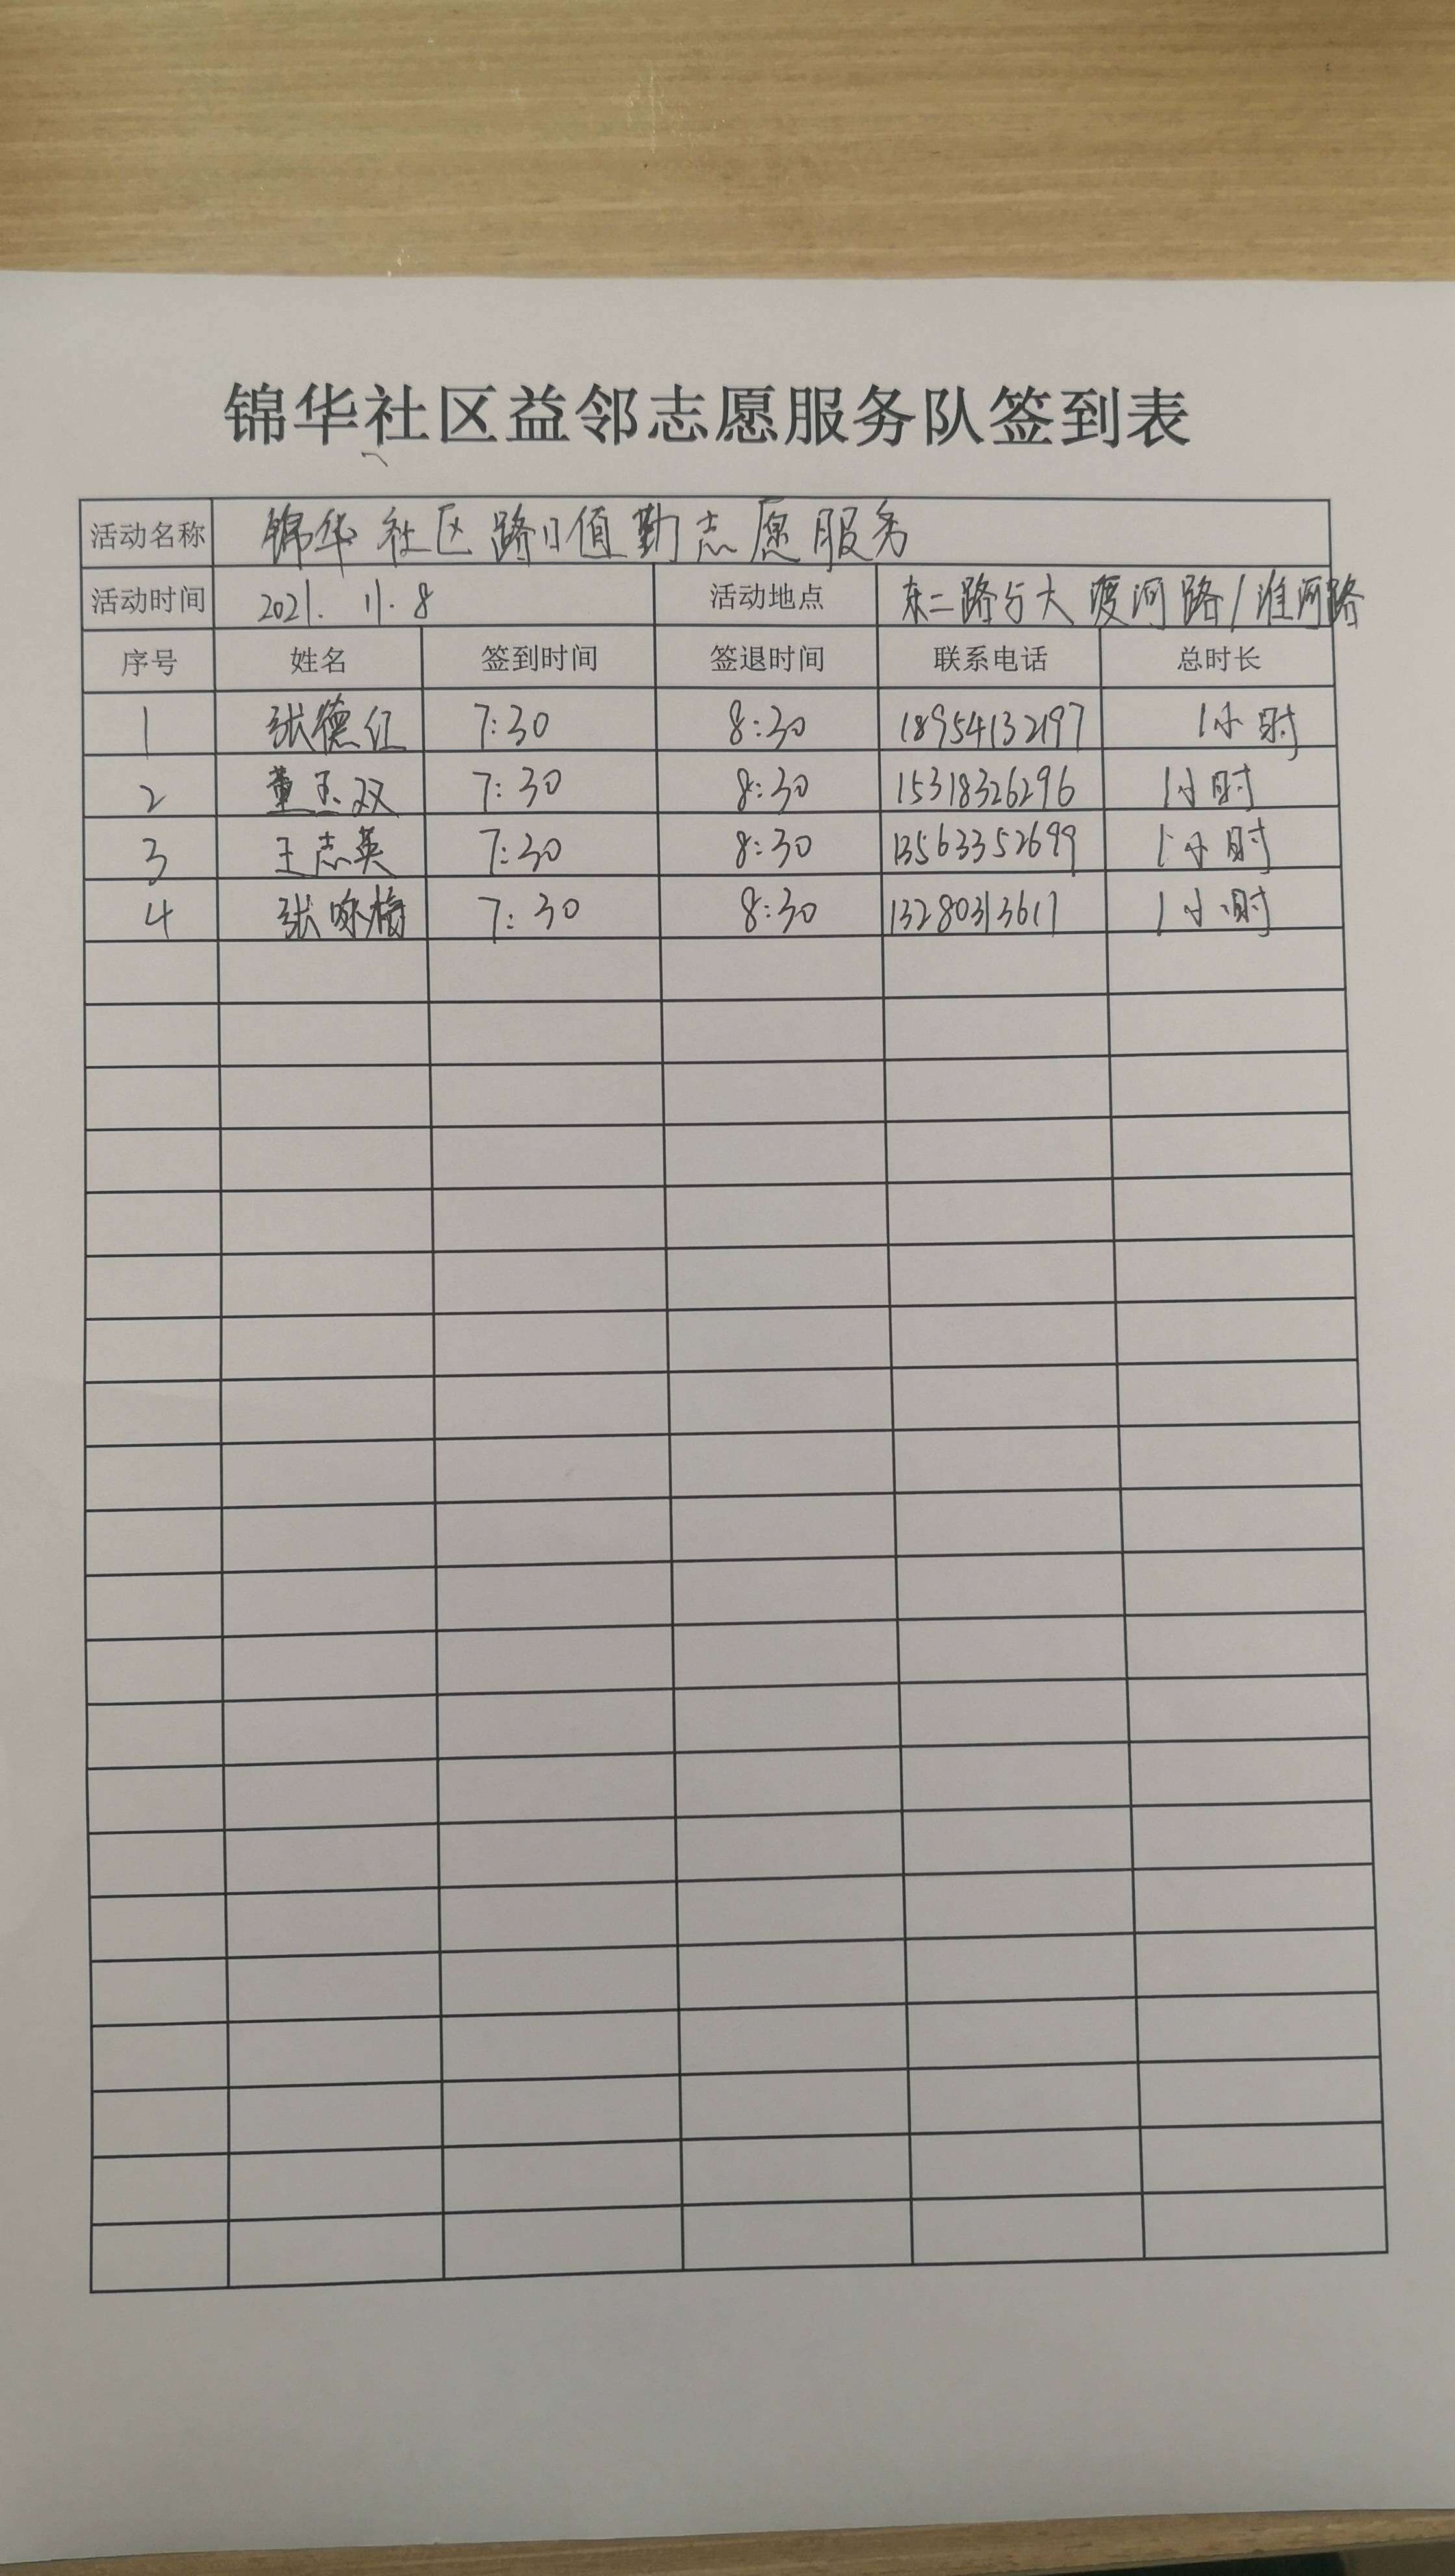 锦华社区益邻志愿服务队签到表
活动名称 锦华社区路口值勤志愿服务
活动时间 2021.11.8 活动地点 东二路与大渡河路/淮河路
序号 姓名 签到时间 签退时间 联系电话 总时长
1 张德红 7:30 8:30 18954132197 1小时
2 董玉双 7:30 8:30 15318326296 1小时
3 王志英 7:30 8:30 13563352699 1小时
4 张咏梅 7:30 8:30 13280313617 1小时